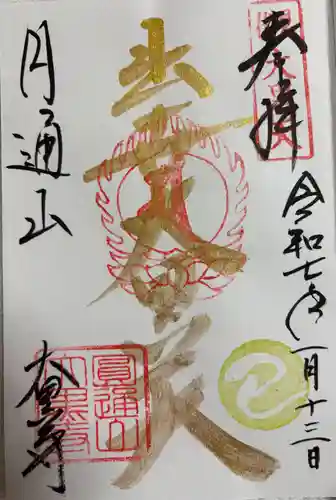 奉拝
令和七年一月十三日
出世大黒天
円通山
圓通山